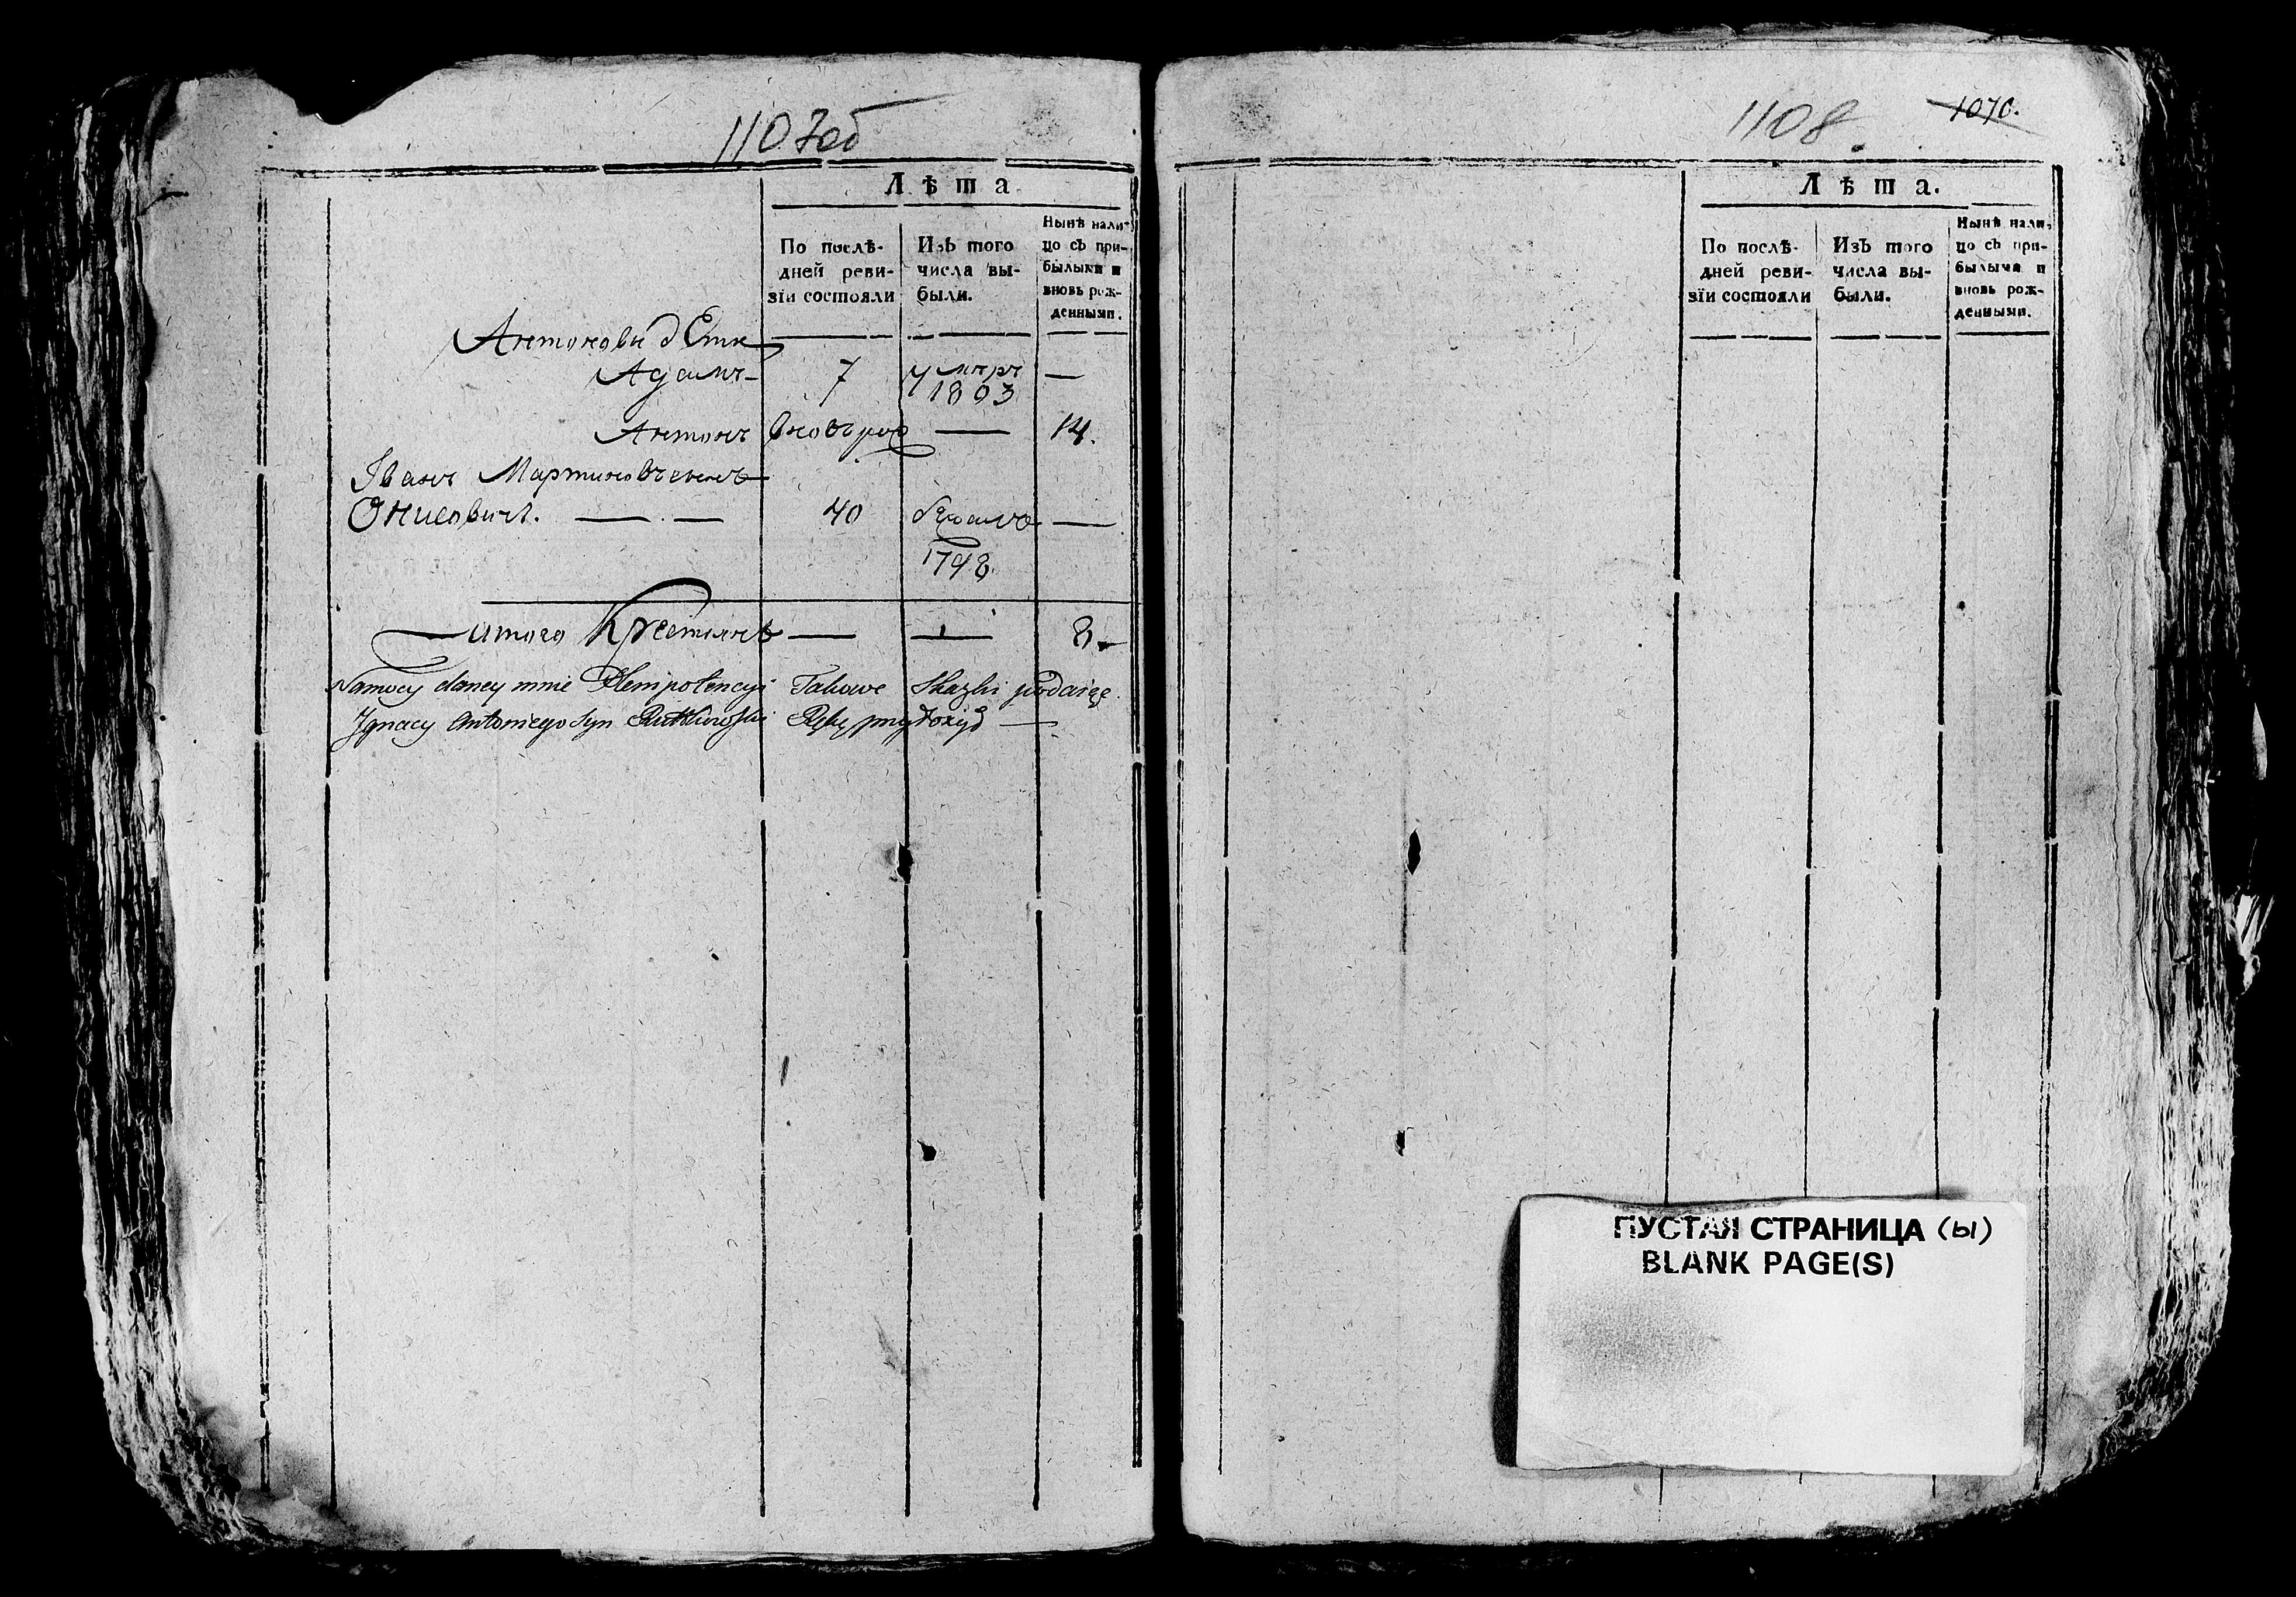 1107об
Лѣта
По послѣ-
дней реви-
зіи состояли
Изъ того
числа вы-
были.
Нынѣ нали-
цо съ при-
былыми и
вновь рож-
денными.
Антоновы дѣти
Адамъ 7 умръ —
1803
Антонъ вновь рож — 14.
Іванъ Мартиновъ сынъ
Онисовичъ. — — 40 —
1798
итого Крестянъ — — 8
Na mocy daney mnie Plenipotencyi Takowe Skazki podaięc
Ignacy Antoniego Syn Rutkowski Rękę przyłożył —
1108 1070.
Лѣта.
По послѣ-
дней реви-
зіи состояли
Изъ того
числа вы-
были.
Нынѣ нали-
цо съ при-
былыми и
вновь рож-
денными.
ПУСТАЯ СТРАНИЦА (ы)
BLANK PAGE(S)